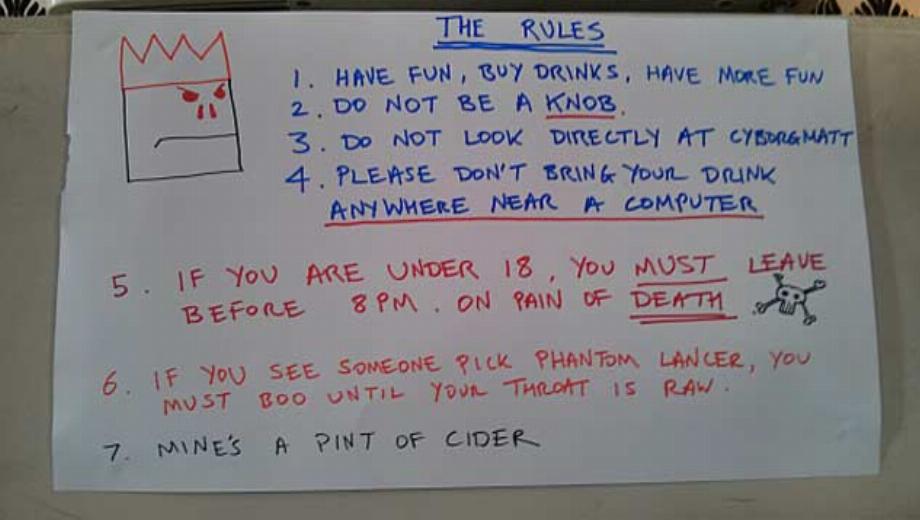 THE RULES
1. HAVE FUN, BUY DRINKS, HAVE MORE FUN
2. DO NOT BE A KNOB.
3. DO NOT LOOK DIRECTLY AT CYBORGMATT
4. PLEASE DON'T BRING YOUR DRINK
ANYWHERE NEAR A COMPUTER
5. IF YOU ARE UNDER 18, YOU MUST LEAVE
BEFORE 8PM. ON PAIN OF DEATH
6. IF YOU SEE SOMEONE PICK PHANTOM LANCER, YOU
MUST BOO UNTIL YOUR THROAT IS RAW.
7. MINE'S A PINT OF CIDER